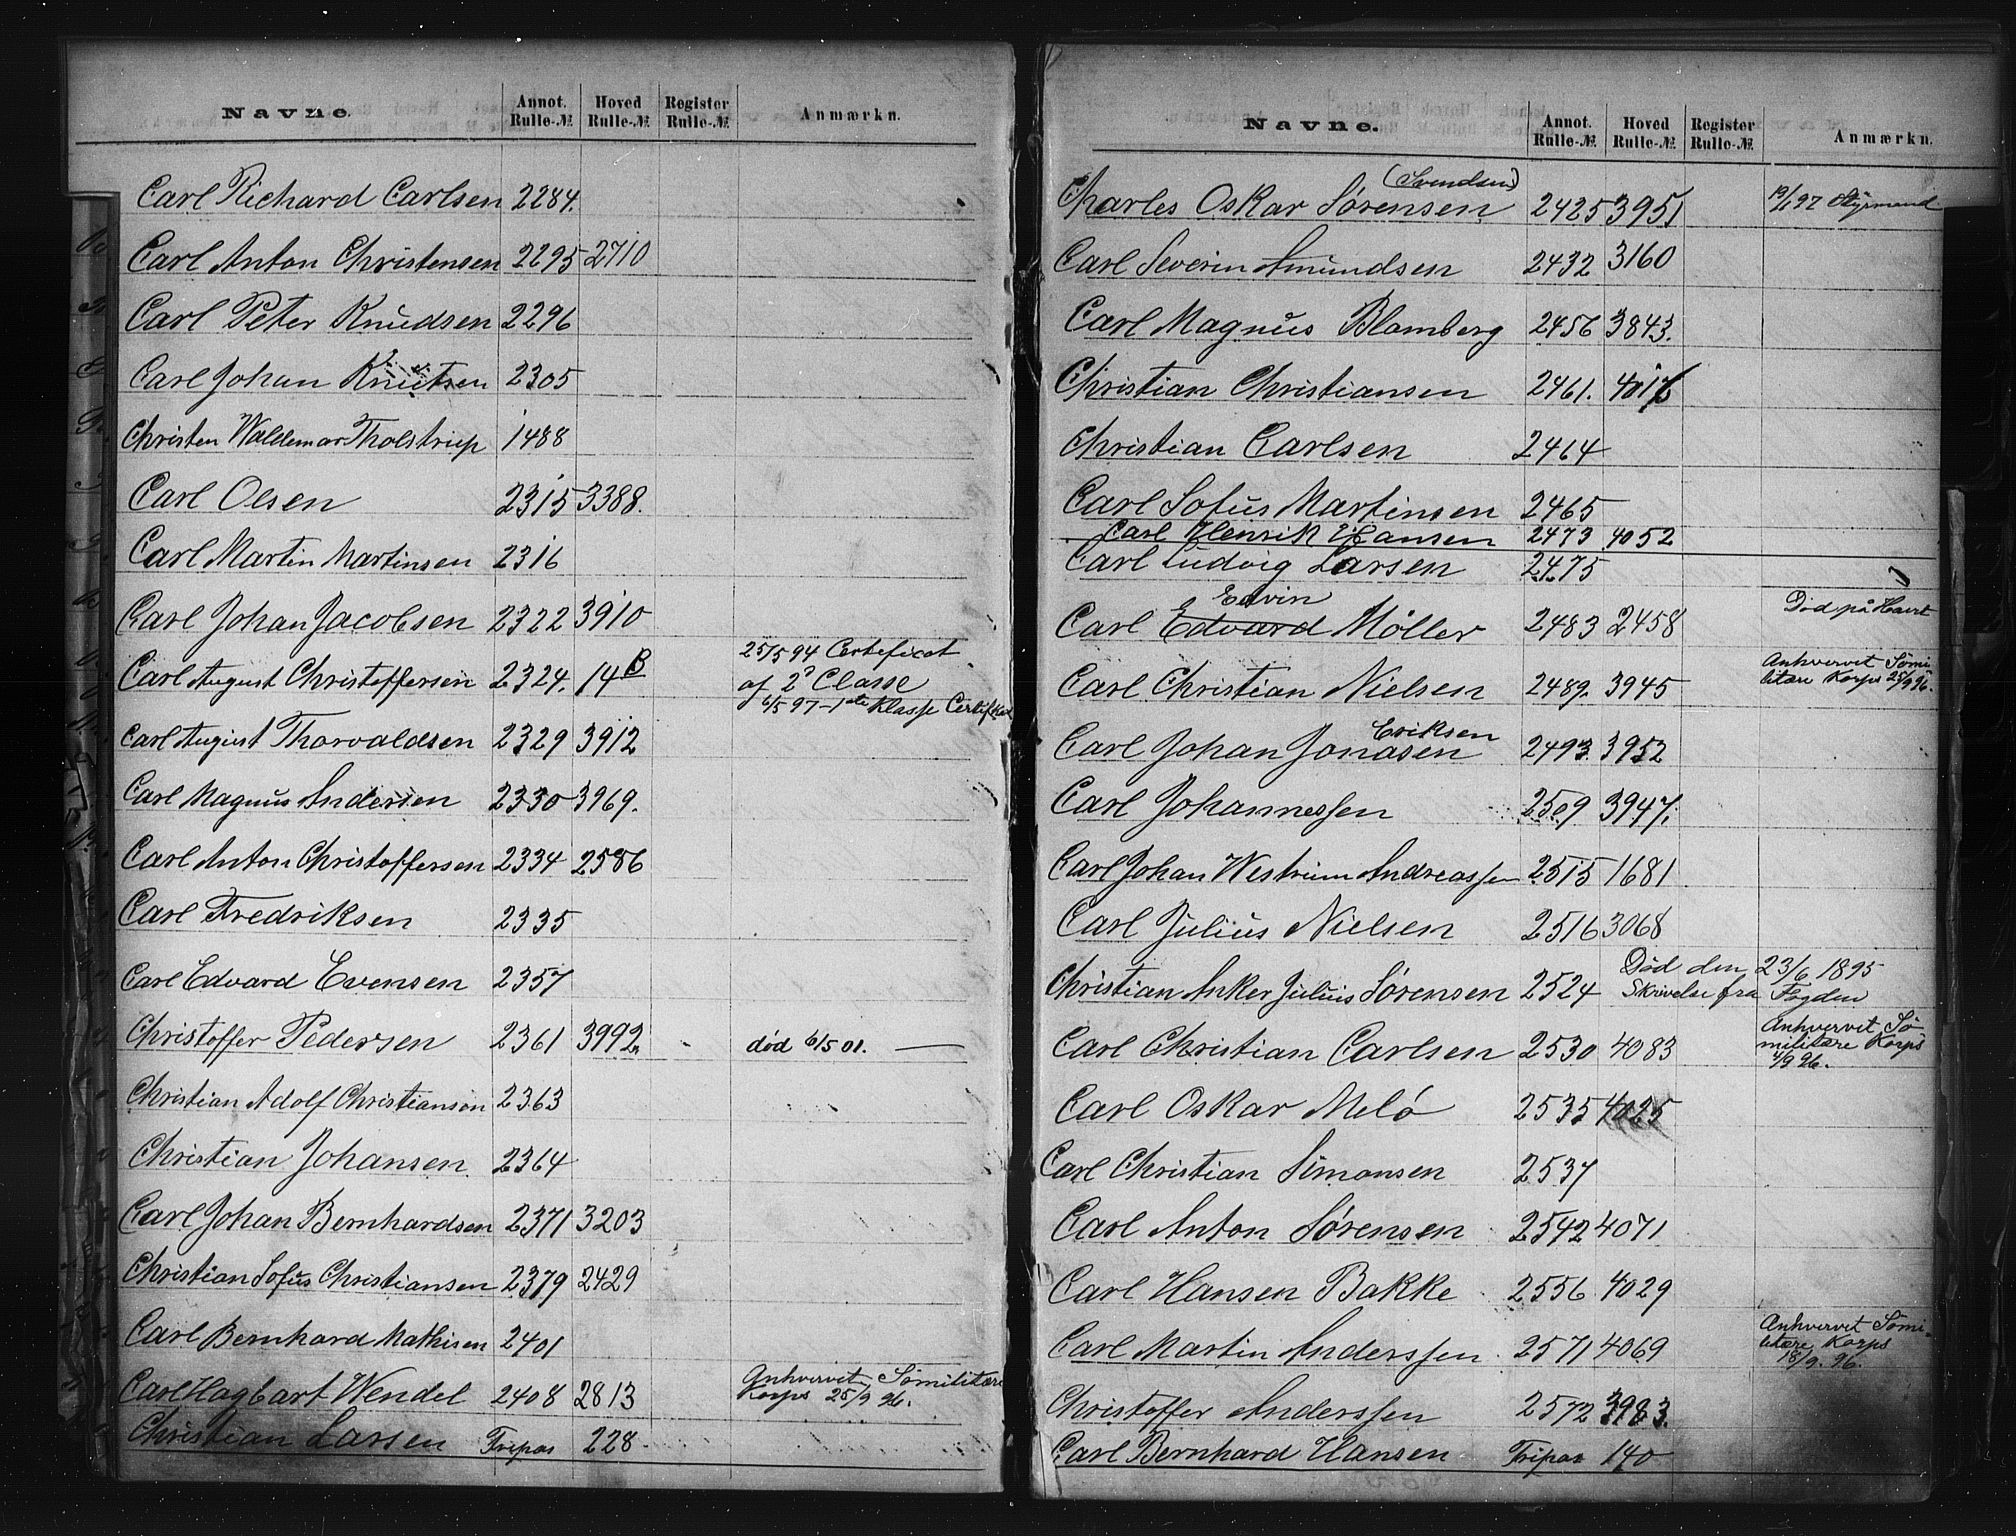 Navne. Annot. Rulle-№ Hoved Rulle-№ Register Rulle-№ Anmærkn.
Carl Richard Carlsen 2284.
Carl Anton Christensen 2295 2710
Carl Peter Knudsen 2296
Carl Johan Knutsen 2305
Christen Waldemar Tholstrup 1488
Carl Olsen 2315 3388.
Carl Martin Martinsen 2316
Carl Johan Jacobsen 2322 3910
Carl August Christoffersen 2324. 14 B 25/5 94 Certeficat
af 2 Classe
6/5 97 - 1ste Klasse Certifikat
Carl August Thorvaldsen 2329 3912
Carl Magnus Andersen 2330 3969.
Carl Anton Christoffersen 2334 2586
Carl Fredriksen 2335
Carl Edvard Evensen 2357
Christoffer Pedersen 2361 3992 død 6/5 01.
Christian Adolf Christiansen 2363
Christian Johansen 2364
Carl Johan Bernhardsen 2371 3203
Christian Sofus Christiansen 2379 2429
Carl Bernhard Mathisen 2401
Carl Hagbart Wendel 2408 2813 Anhvervet Sømilitære
Korps 25/9 96.
Christian Larsen Fripas 228
Navne. Annot. Rulle-№ Hoved Rulle-№ Register Rulle-№ Anmærkn.
(Svendsen)
Charles Oskar Sørensen 2425 3951 Styrmand
Carl Severin Amundsen 2432 3160
Carl Magnus Blomberg 2456 3843.
Christian Christiansen 2461.
Christian Carlsen 2464
Carl Sofus Martinsen 2465
Carl Henrik Hansen 2473 4052
Carl Ludvig Larsen 2475
Edvin
Carl Edvard Møller 2483 2458 Død på Havet
Carl Christian Nielsen 2489. 3945 Anhvervet Sømi-
litære Korps 25/9 96.
Eriksen
Carl Johan Jonasen 2493 3952
Carl Johannessen 2509 3947.
Carl Johan Westrum Andreassen 2515 1681
Carl Julius Nielsen 2516 3068
Christian Anker Julius Sørensen 2524 Død den 23/6 1895
Skrivelse fra Fogden
Carl Christian Carlsen 2530 4083 Anhvervet Sø-
militære Korps
4/9 96.
Carl Oskar Melø 2535 4025
Carl Christian Simonsen 2537
Carl Anton Sørensen 2542 4071
Carl Hansen Bakke 2556 4029
Carl Martin Anderssen 2571 4069 Anhvervet Sømi-
litære Korps
18/9. 96.
Christoffer Anderssen 2572 3983.
Carl Bernhard Hansen Fripas 140